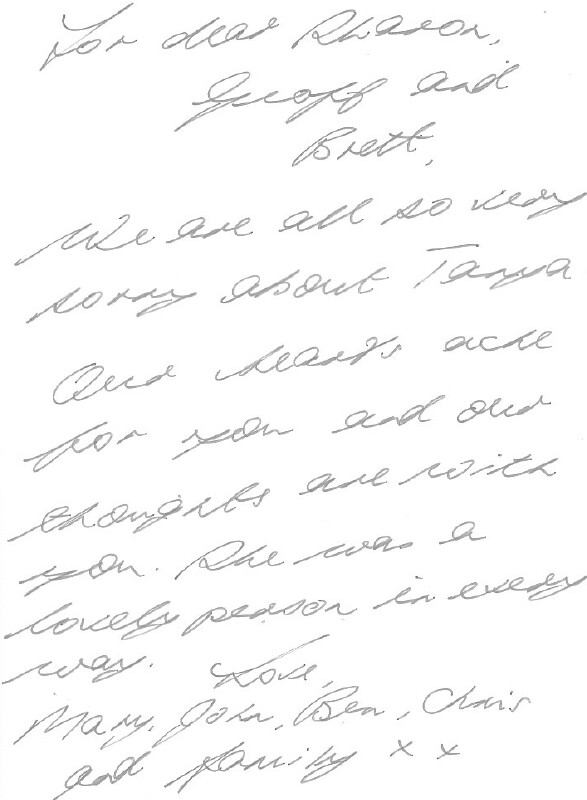 For dear Sharon,
Geoff and
Brett,
We are all so very
sorry about Tanya
Our hearts ache
for you and our
thoughts are with
you. She was a
lovely person in every
way. Love,
Mary, John, Ben, Chris
and family x x